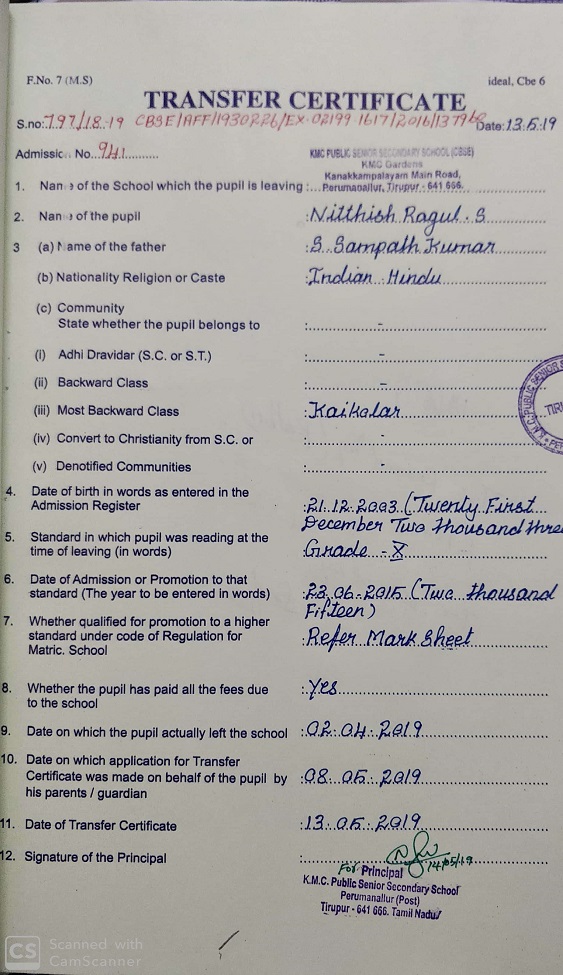 F.No. 7 (M.S)
ideal, Cbe 6
TRANSFER CERTIFICATE
S.no: 797/18-19 CBSE/AFF/1930226/EX-02199-1617/2016/137962 Date: 13.5.19
Admission No. 941
KMC PUBLIC SENIOR SECONDARY SCHOOL (CBSE)
KMC Gardens
Kanakkampalayam Main Road,
1. Name of the School which the pupil is leaving :... Perumanallur, Tirupur - 641 666.
2. Name of the pupil : Nitthish Ragul. S
3 (a) Name of the father : S. Sampath Kumar
(b) Nationality Religion or Caste : Indian - Hindu
(c) Community
State whether the pupil belongs to : -
(i) Adhi Dravidar (S.C. or S.T.) : -
(ii) Backward Class : -
(iii) Most Backward Class : Kaikolar
(iv) Convert to Christianity from S.C. or : -
(v) Denotified Communities : -
4. Date of birth in words as entered in the
Admission Register : 21.12.2003 (Twenty First
December Two thousand three
5. Standard in which pupil was reading at the
time of leaving (in words) : Grade - X
6. Date of Admission or Promotion to that
standard (The year to be entered in words) : 23.06-2015 (Two thousand
Fifteen)
7. Whether qualified for promotion to a higher
standard under code of Regulation for : Refer Mark Sheet
Matric. School
8. Whether the pupil has paid all the fees due : Yes
to the school
9. Date on which the pupil actually left the school : 02.04.2019
10. Date on which application for Transfer
Certificate was made on behalf of the pupil by : 08.05.2019
his parents / guardian
11. Date of Transfer Certificate : 13.05.2019
12. Signature of the Principal : 14/05/19
For Principal
K.M.C. Public Senior Secondary School
Perumanallur (Post)
Tirupur - 641 666. Tamil Nadu
K.M.C. PUBLIC SENIOR
CS Scanned with
CamScanner